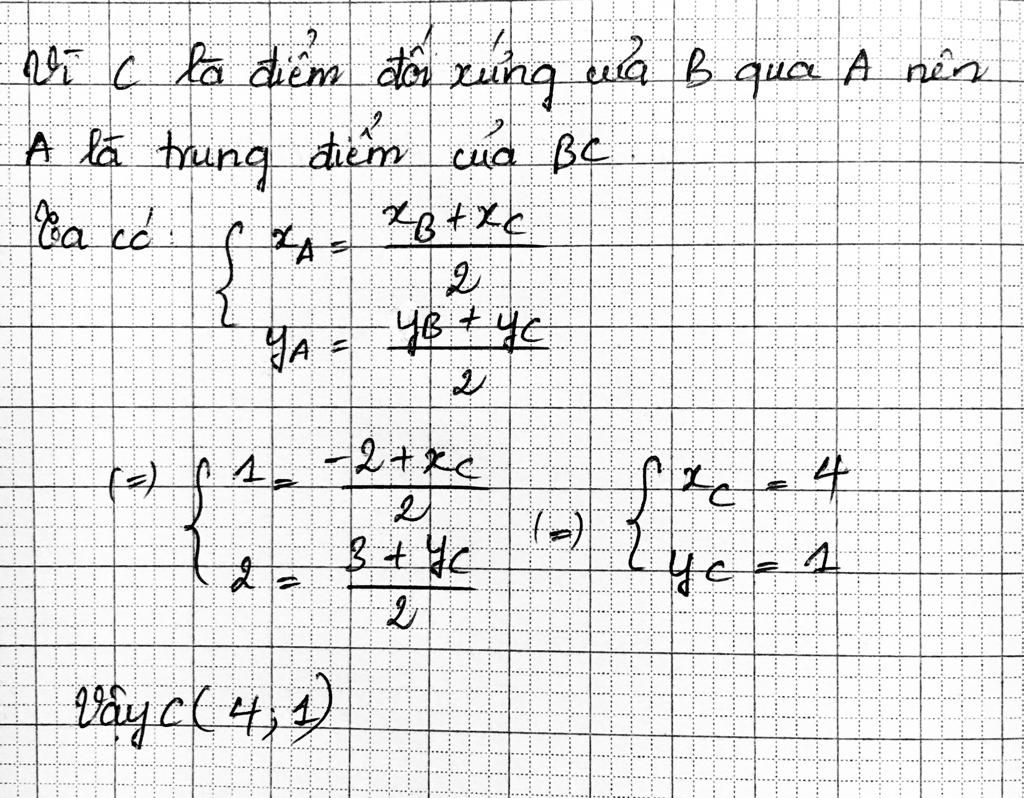 Vì C là điểm đối xứng của B qua A nên
A là trung điểm của BC.
Ta có: { x_A = (x_B + x_C)/2
y_A = (y_B + y_C)/2
(=) { 1 = (-2 + x_C)/2 (=) { x_C = 4
2 = (3 + y_C)/2 y_C = 1
Vậy C(4; 1)